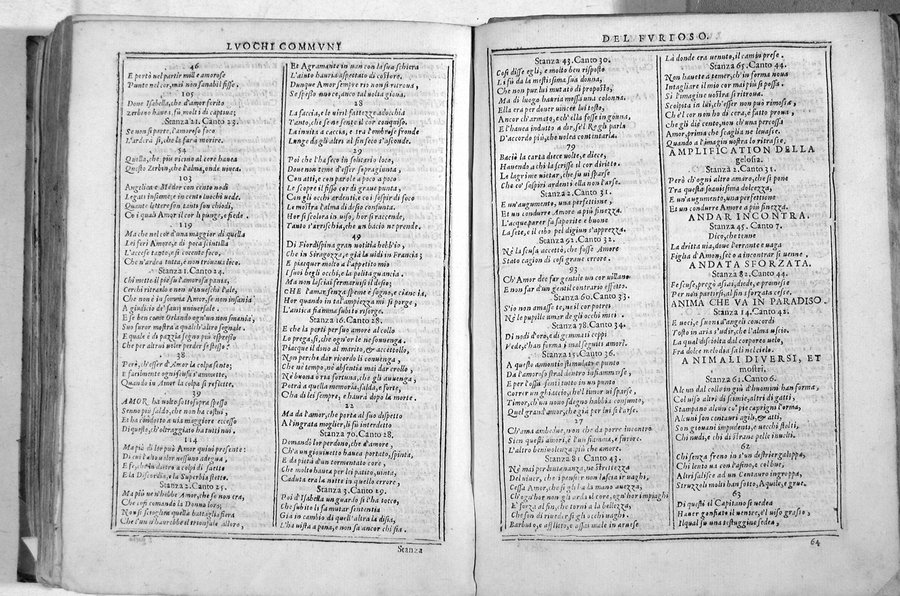 LVOCHI COMMVNI
46
E portò nel partir mill e amorose
Punte nel cor, mai non sanabil fisso,
105
Doue Isabella, che d'amor ferito
Zerbino hauea, fù molti di captiua;
Stanza 21. Canto 23.
Se non si parte, l'amoroso foco
L'arderà si, che la farà morire.
54
Quella, che più vicino al core hauea
Questo Zerbin, che l'alma, onde viuea.
103
Angelica e Medor con cento nodi
Legati insieme, e in cento luochi vede.
Quante lettere son tanti son chiodi,
Co i quali Amor il cor lo punge, e fiede.
119
Ma che nel cor d'una maggior di quella
Lei ferì Amore, e di poca scintilla
L'accese tanto, e sì cocente foco,
Che n'ardea tutta, e non trouaua loco.
Stanza 1. Canto 24.
Chi mette il piè sù l'amorosa pania,
Cerchi ritrarlo e non v'inueschi l'ale,
Che non è in somma Amor, se non insania
A giudicio de' saui vniuersale.
E se ben come Orlando ogn'un non smania,
Suo furor mostra a qualch'altro segnale.
E quale è di pazzia segno più espresso
Che per altrui voler perder se stesso?
38
Però, ch'esser d'Amor la colpa sento;
E facilmente ogni scusa s'ammette,
Quando in Amor la colpa si reflette.
39
AMOR ha volto sottosopra spesso
Senno più saldo, che non ha costui,
Et ha condotto a via maggiore eccesso
Di questo, ch'oltraggiato ha tutti nui.
114
Ma più di lor può Amor quiui presente:
Di cui se l'ire non nascono adegua,
E fa, ch'indietro a colpi di saette
E la Discordia, e la Superbia stette.
Stanza 2. Canto 25.
Ma più ne n'hebbe Amor, che se non era,
Che così comando la Donna loro;
Non si sciogliea quella battaglia fiera
Che l'un n'haurebbe il trionfale alloro,
Et Agramante in van con la sua schiera
L'aiuto hauria aspettato di costoro.
Dunque Amor sempre rio non si ritroua,
Se spesso nuoce, anco tal volta gioua.
28
La faccia, e le viril fattezze adocchia
Tanto, che se ne sente il cor conquiso.
La inuita a caccia, e tra l'ombrose fronde
Lunge da gli altri al fin seco s'asconde.
29
Poi che l'ha seco in solitario loco,
Doue non teme d'esser sopragiunta,
Con atti, e con parole a poco a poco
Le scopre il fisso cor di graue punta,
Con gli occhi ardenti, e coi sospir di foco
Le mostra l'alma di desio consunta.
Hor si scolora in viso, hor si raccende,
Tanto s'arrischia, che un bacio ne prende.
49
Di Fiordispina gran notitia hebb'io,
Che in Siragozza, e già la vidi in Francia;
E piacquer molto a l'appetito mio
I suoi begli occhi, e la polita guancia.
Ma non lasciai fermaruisi il desio;
CHE l'amar senza speme è sogno, e ciancia,
Hor quando in tal'ampiezza mi si porge,
L'antica fiamma subito risorge.
Stanza 16. Canto 28.
E che la porti per suo amore al collo
Lo prega, sì, che ogn'or le ne souuenga.
Piacque il dono al marito, & accettollo,
Non perche dar ricordo li conuenga,
Che nè tempo, nè absentia mai dar crollo,
Nè buona o ria fortuna, che gli auuenga,
Potrà a quella memoria, salda, e forte,
C'ha di lei sempre, e haurà dopo la morte.
22
Ma da l'amor, che porta al suo dispetto
A l'ingrata moglier, li fu interdetto
Stanza 70. Canto 28.
Domandò lor perdono, che d'amore,
Ch'un giouinetto hauea portato, spinta,
E da pietà d'un tormentato core,
Che molte pene hauea per lei patito, vinta,
Caduta era la notte in quello errore,
Stanza 3. Canto 29.
Poi d'Isabella un guardo si l'ha tocco,
Che subito li fa mutar sententia
Già in cambio di quell'altra la disia,
L'ha vista a pena, e non sa ancor chi sia.
Stanza
DEL FVRIOSO.
Stanza 43. Canto 30.
Così disse egli, e molto ben risposto
Li fù da la mestissima sua donna,
Che non pur lui mutato di proposto,
Ma di luogo hauria mossa una colonna.
Ella era per douer vincer lui tosto,
Ancor ch'armato, ech'ella fosse in gonna,
E l'hauea indutto a dir, se'l Re gli parla
D'accordo più, che volea contentarla.
79
Baciò la carta diece volte, e diece,
Hauendo a chi la scrisse il cor diritto.
Le lagrime vietar, che sù vi sparse
Che co' sospiri ardenti ella non l'arse.
Stanza 2. Canto 31.
E un'augumento, una perfettione,
Et un condurre Amore a più finezza.
L'acque parer fa saporite e buone
La sete, e il cibo pel digiun s'apprezza.
Stanza 92. Canto 32.
Nè la scusa accettò, che fosse Amore
Stato cagion di così graue errore.
93
Ch'Amor dee far gentile un cor villano
E non far d'un gentil contrario effetto.
Stanza 60. Canto 33.
S'io non amassi te, nè il cor potrei
Nè le pupille umar de gli occhi miei.
Stanza 78. Canto 34.
Di nodi d'oro, e di gemmati ceppi
Vede, c'han forma i mal seguiti amori.
Stanza 15. Canto 36.
A questo annontio stimulata e punto
Da l'amoroso stral dentro infiammarse,
E per l'ossa sentì tutto in un punto
Correr un ghiaccio, che'l timor vi sparse,
Timor, ch'un nouo sdegno habbia consunto,
Quel grand'amor, che già per lei sì l'arse.
27
Ch'ama ambedue, non che da porre incontro
Sien questi amori, è l'un fiamma, e furore.
L'altro beniuolenza più che amore.
Stanza 81. Canto 43.
Nè mai per lontananza, ne strettezza
Del viuer, che i pensier non lascia ir vaghi,
Cessa Amor, che si gli ha la mano auezza,
Ch'ogn'hor non gli arda il core, ogn'hor impiaghi
E' forza al fin, che torni a la bellezza,
Che son di riueder sì gli occhi vaghi.
Barbuto, e afflitto, e assai male in arnese
Là donde era venuto, il camin prese.
Stanza 65. Canto 44.
Non hauete a temer, ch'in forma noua
Intagliare il mio cor mai più si possa.
Sì l'imagine vostra si ritroua.
Scolpita in lui, ch'esser non può rimossa,
Che'l cor non ho di cera, e fatto proua,
che gli diè cento, non ch'una percossa
Amor, prima che scaglia ne leuasse.
Quando a l'imagin vostra lo ritrasse,
AMPLIFICATION DELLA
gelosia.
Stanza 2. Canto 31.
Però ch'ogni altro amaro, che si pone
Tra questa soauissima dolcezza,
E un'augumento, una perfettione
Et un condurre Amore a più finezza.
ANDAR INCONTRA.
Stanza 45. Canto 7.
Dico, che tenne
La dritta via, doue l'errante e vaga
Figlia d'Amon, sè a incontrar si venne.
ANDATA SFORZATA.
Stanza 82. Canto 44.
Fe scuse, pregò assai, diede, e promesse
Per non partirsi, al fin sforzata cesse.
ANIMA CHE VA IN PARADISO.
Stanza 14. Canto 42.
E voci, e suoni d'angeli concordi
Tosto in aria s'udir, che l'alma vscio.
La qual disciolta dal corporeo velo,
Fra dolce melodia salì nel cielo.
ANIMALI DIVERSI, ET
mostri.
Stanza 61. Canto 6.
Alcun dal collo in giù d'huomini han forma,
Col viso altri di simie, altri di gatti,
Stampano alcun co' piè caprigni l'orma,
Alcuni son centauri agili, & atti,
Son giouani impudenti, e vecchi stolti,
Chi nudi, e chi di strane pelle inuolti.
62
Chi senza freno in s'un destrier galoppa,
Chi lento va con l'asino, e col bue,
Altri salisce ad un Centauro in groppa,
Struzzoli molti han sotto, Aquile, e grue.
63
Di questi il Capitano si vedea
Hauer gonfiato il ventre, e'l viso grasso,
Il qual su una testuggine sedea,
64